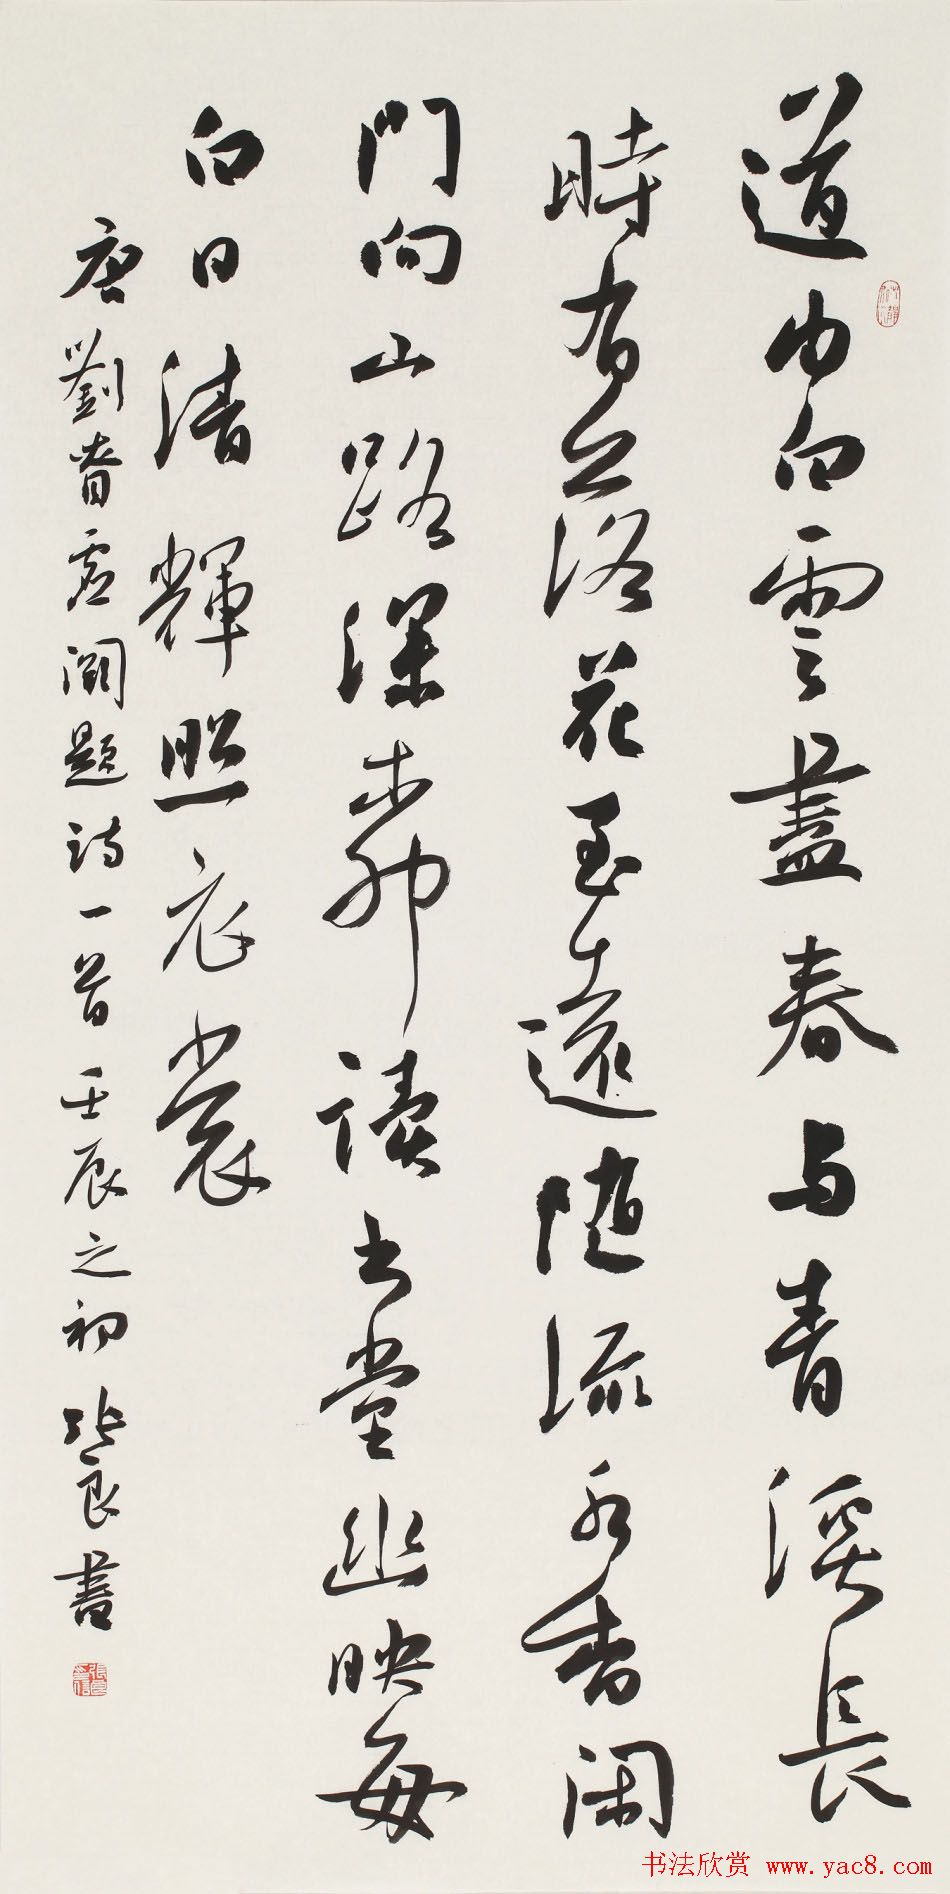 道由白雲盡春与青溪長
時有落花至遠随流水香閑
門向山路深柳讀書堂幽映每
白日清輝照衣裳
唐劉眘虛闕題詩一首壬辰之初 張良書
书法欣赏 www.yac8.com